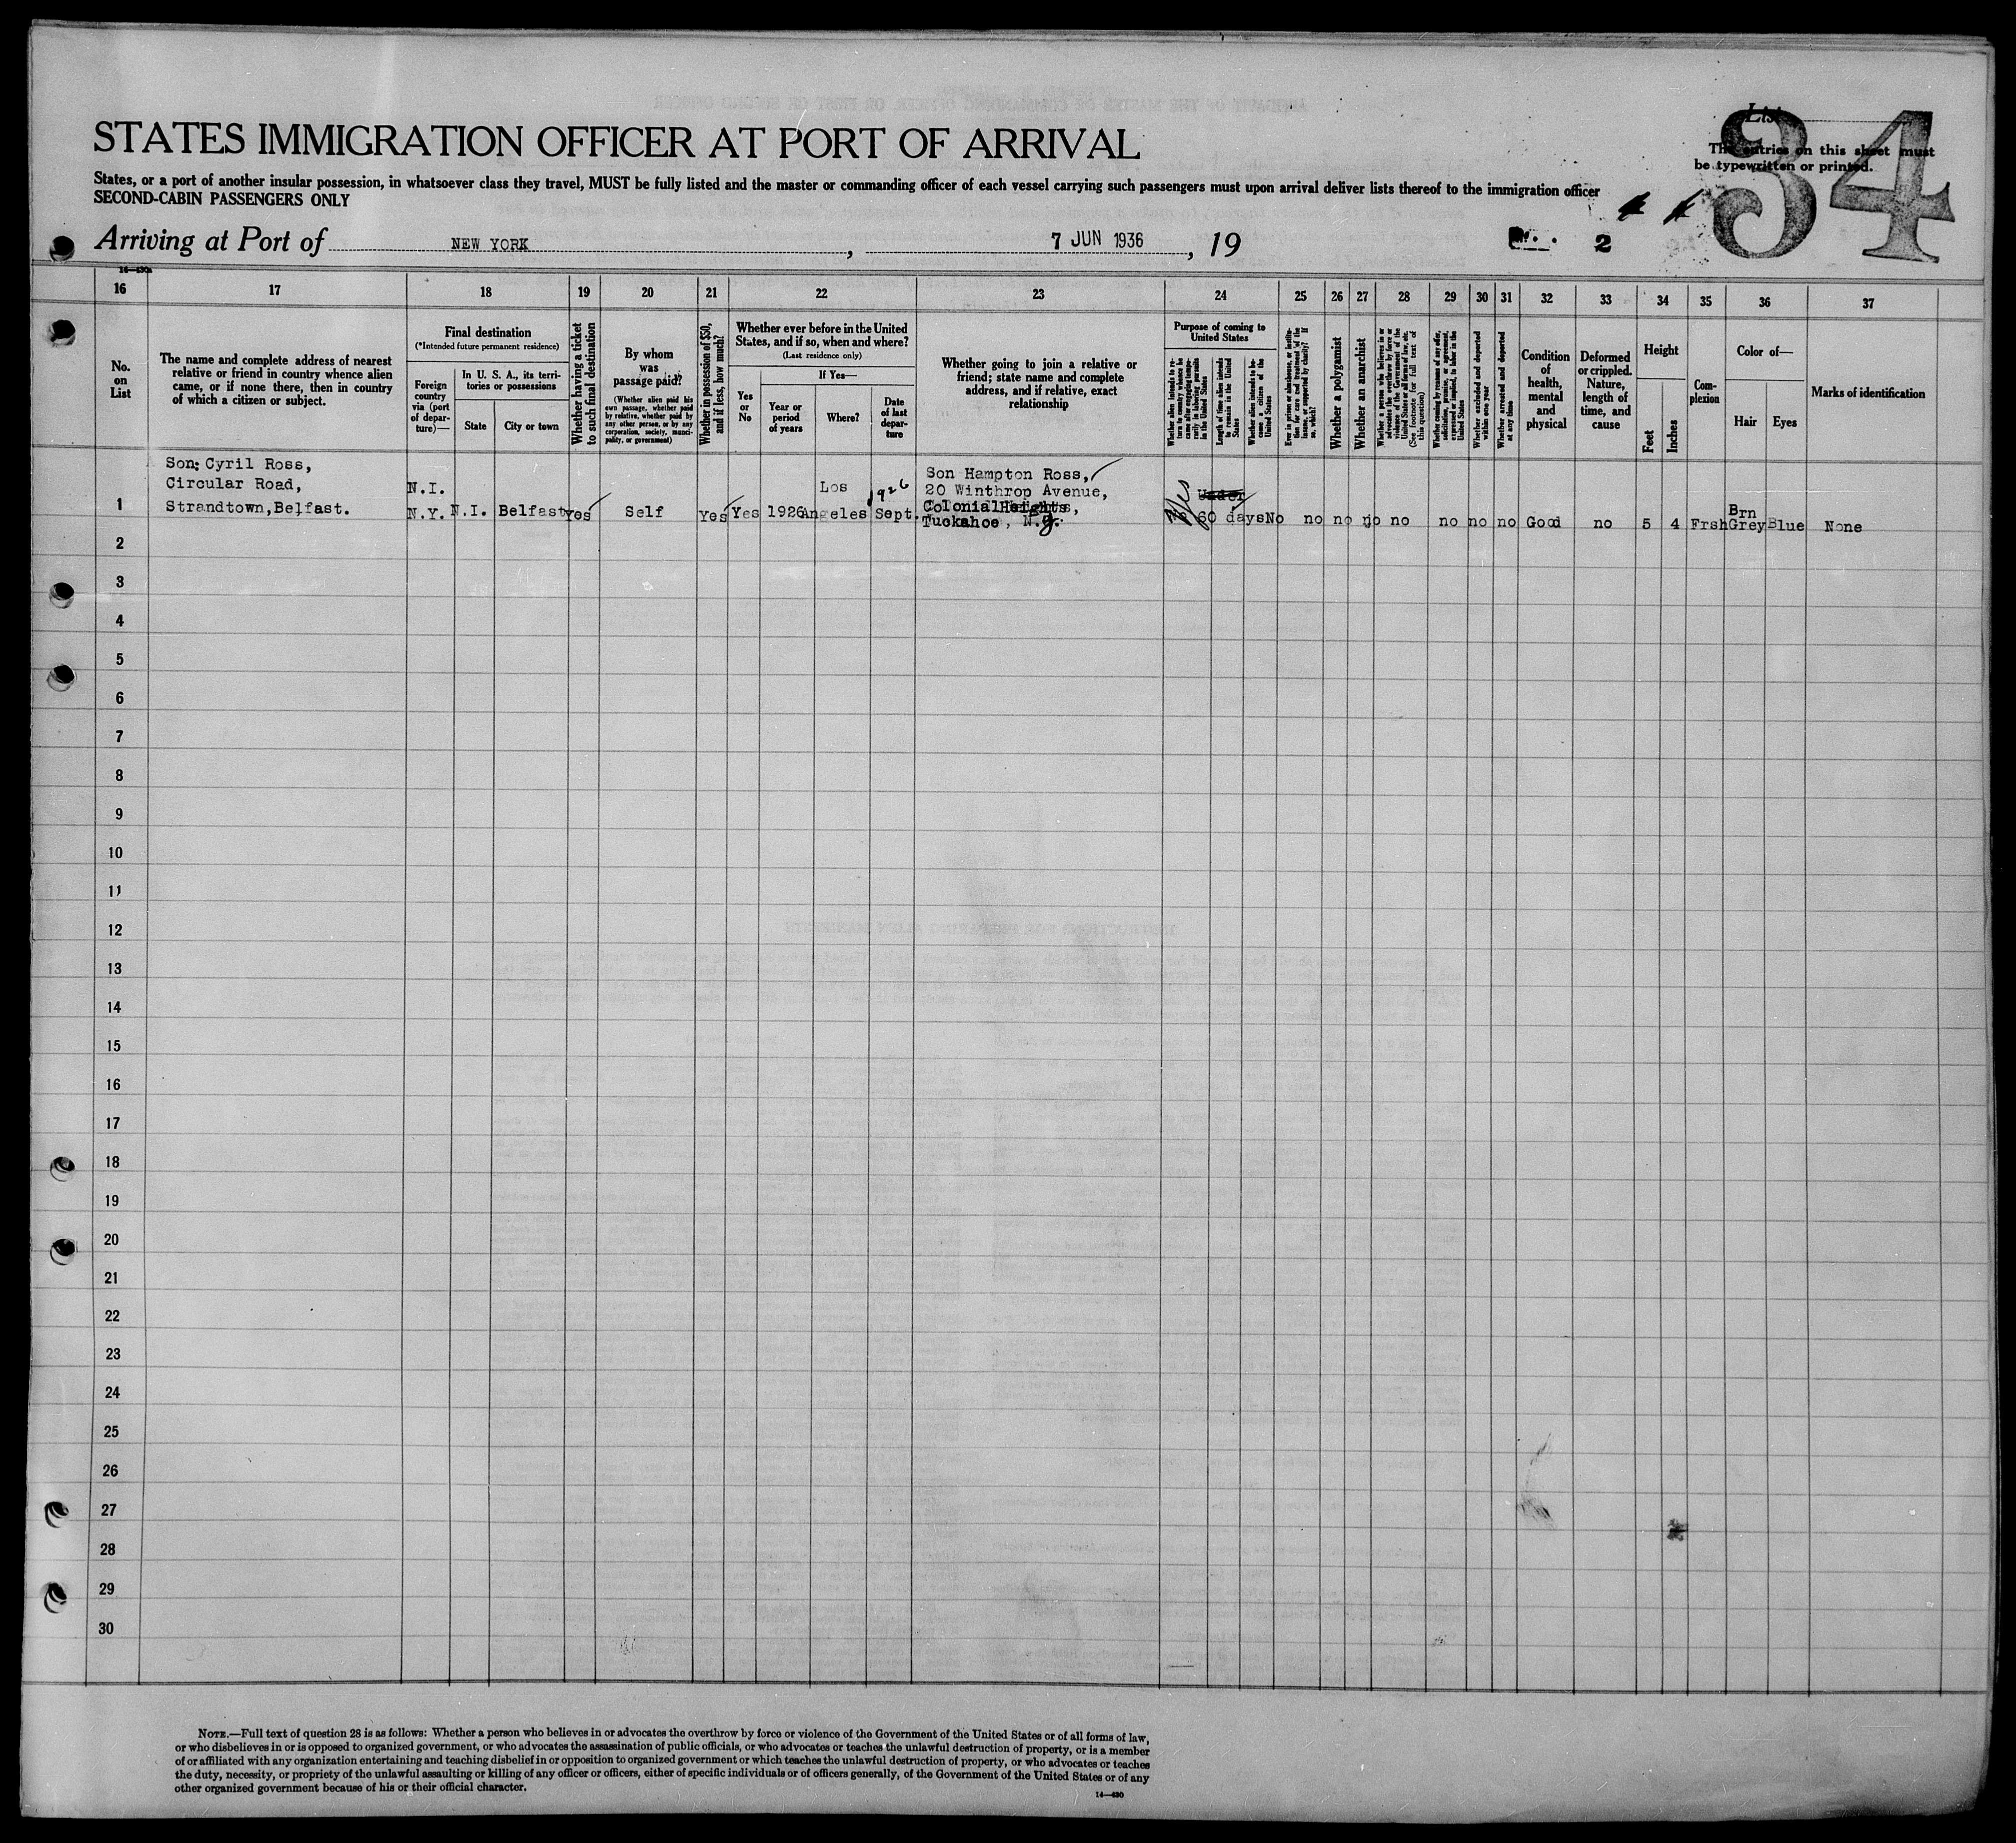 List
34
The entries on this sheet must
be typewritten or printed.
STATES IMMIGRATION OFFICER AT PORT OF ARRIVAL
States, or a port of another insular possession, in whatsoever class they travel, MUST be fully listed and the master or commanding officer of each vessel carrying such passengers must upon arrival deliver lists thereof to the immigration officer
SECOND-CABIN PASSENGERS ONLY
Arriving at Port of NEW YORK, 7 JUN 1936, 19
2
16 17 18 19 20 21 22 23 24 25 26 27 28 29 30 31 32 33 34 35 36 37
No.
on
List
The name and complete address of nearest
relative or friend in country whence alien
came, or if none there, then in country
of which a citizen or subject.
Final destination
(*Intended future permanent residence)
Foreign
country
via (port
of depar-
ture)—
In U. S. A., its terri-
tories or possessions
State
City or town
Whether having a ticket
to such final destination
By whom
was
passage paid?
(Whether alien paid his
own passage, whether paid
by relative, whether paid by
any other person, or by any
corporation, society, munici-
pality, or government)
Whether in possession of $50,
and if less, how much?
Whether ever before in the United
States, and if so, when and where?
(Last residence only)
Yes
or
No
If Yes—
Year or
period
of years
Where?
Date
of last
depar-
ture
Whether going to join a relative or
friend; state name and complete
address, and if relative, exact
relationship
Purpose of coming to
United States
Whether alien intends to re-
turn to country whence he
came after engaging tempo-
rarily in laboring pursuits
in the United States
Length of time alien intends
to remain in the United
States
Whether alien intends to be-
come a citizen of the
United States
Ever in prison or almshouse, or institu-
tion for care and treatment of the
insane, or supported by charity? If
so, which?
Whether a polygamist
Whether an anarchist
Whether a person who believes in or
advocates the overthrow by force or
violence of the Government of the
United States or all forms of law, etc.
(See footnote for full text of
this question)
Whether coming by reason of any offer,
solicitation, promise, or agreement,
expressed or implied, to labor in the
United States
Whether excluded and deported
within one year
Whether arrested and deported
at any time
Condition
of
health,
mental
and
physical
Deformed
or crippled.
Nature,
length of
time, and
cause
Height
Feet
Inches
Com-
plexion
Color of—
Hair
Eyes
Marks of identification
Son: Cyril Ross,
Circular Road,
Strandtown, Belfast.
N.I.
N.Y. N.I. Belfast Yes Self Yes Yes 1926
Los
Angeles
1926
Sept.
Son Hampton Ross,
20 Winthrop Avenue,
Colonial Heights,
Tuckahoe, N.Y.
Yes
Under
60 days No no no no no no no no Good no 5 4 Frsh
Brn
Grey Blue None
1
2
3
4
5
6
7
8
9
10
11
12
13
14
15
16
17
18
19
20
21
22
23
24
25
26
27
28
29
30
NOTE.—Full text of question 28 is as follows: Whether a person who believes in or advocates the overthrow by force or violence of the Government of the United States or of all forms of law,
or who disbelieves in or is opposed to organized government, or who advocates the assassination of public officials, or who advocates or teaches the unlawful destruction of property, or is a member
of or affiliated with any organization entertaining and teaching disbelief in or opposition to organized government or which teaches the unlawful destruction of property, or who advocates or teaches
the duty, necessity, or propriety of the unlawful assaulting or killing of any officer or officers, either of specific individuals or of officers generally, of the Government of the United States or of any
other organized government because of his or their official character.
14—430